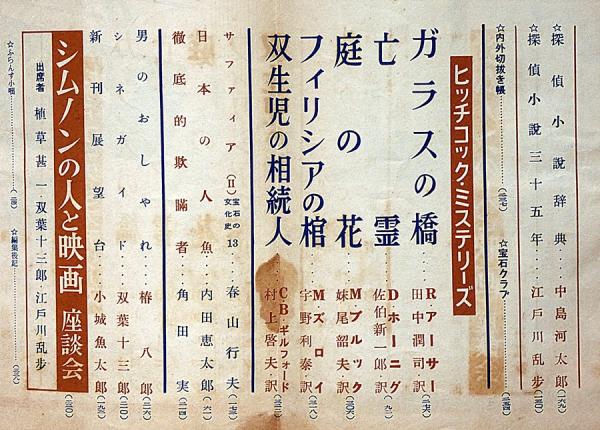 ☆探偵小説辞典……中島河太郎(三六九)
☆探偵小説三十五年……江戸川乱歩(三〇)
☆内外切抜き帳……(三三七)
☆宝石クラブ……(三五四)
ヒッチコック・ミステリーズ
ガラスの橋……Rアーサー 田中潤司・訳(三七六)
亡霊……Dホーニグ 佐伯新一郎・訳(三九)
庭の花……Mブルック 妹尾韶夫・訳(三〇六)
フィリシアの棺……Mズロイ 宇野利泰・訳(三一八)
双生児の相続人……CB・ギルフォード 村上啓夫・訳(三三三)
サファイア(Ⅱ)宝石の文化史13……春山行夫(一七三)
日本の人魚……内田恵太郎(一六一)
徹底的欺瞞者……角田実(二一四)
男のおしゃれ……椿八郎(二六)
シネガイド……双葉十三郎(三〇)
新刊展望台……小城魚太郎(一九三)
シムノンの人と映画 座談会
出席者 植草甚一 双葉十三郎 江戸川乱歩(三〇)
☆ふらんす小咄……(一六〇)
☆編集後記……(三八)